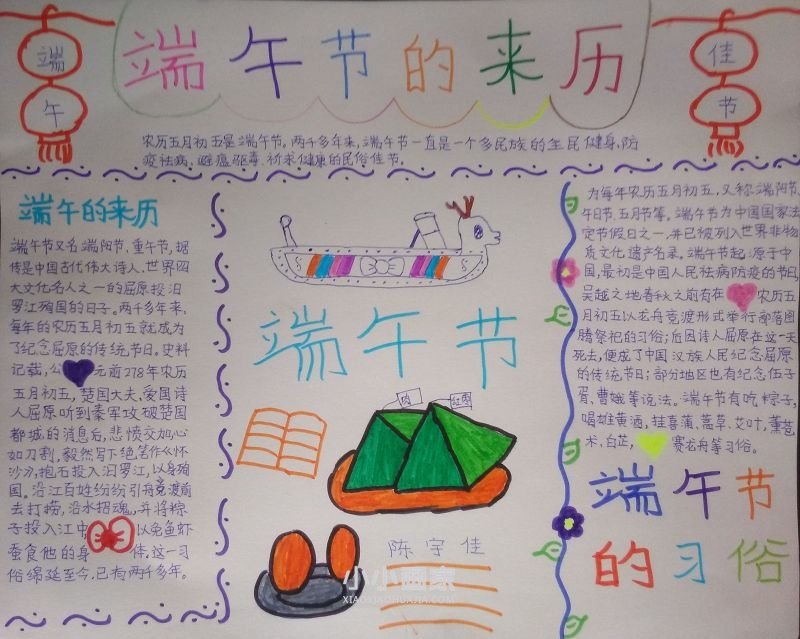 端午
端午节的来历
佳节
农历五月初五是端午节。两千多年来,端午节一直是一个多民族的全民健身、防
疫祛病、避瘟驱毒、祈求健康的民俗佳节。
端午的来历
端午节又名端阳节、重午节,据
传是中国古代伟大诗人、世界四
大文化名人之一的屈原投汨
罗江殉国的日子。两千多年来,
每年的农历五月初五就成为
了纪念屈原的传统节日。史料
记载,公元前278年农历
五月初五,楚国大夫、爱国诗
人屈原听到秦军攻破楚国
都城的消息后,悲愤交加,心
如刀割,毅然写下绝笔作《怀
沙》,抱石投入汨罗江,以身殉
国。沿江百姓纷纷引舟竞渡前
去打捞,沿水招魂,并将粽
子投入江中以免鱼虾
蚕食他的身体,这一习
俗绵延至今,已有两千多年。
端午节
肉
陈宇佳
小小画家
XIAOXIAOHUAJIA.COM
为每年农历五月初五,又称端阳节、
午日节、五月节等。端午节为中国国家法
定节假日之一,并已被列入世界非物
质文化遗产名录。端午节起源于中
国,最初是中国人民祛病防疫的节日,
吴越之地春秋之前有在农历五
月初五以龙舟竞渡形式举行部落图
腾祭祀的习俗;后因诗人屈原在这一天
死去,便成了中国汉族人民纪念屈原
的传统节日;部分地区也有纪念伍子
胥、曹娥等说法。端午节有吃粽子,
喝雄黄酒,挂菖蒲、蒿草、艾叶,薰苍
术、白芷,赛龙舟等习俗。
端午节
的习俗